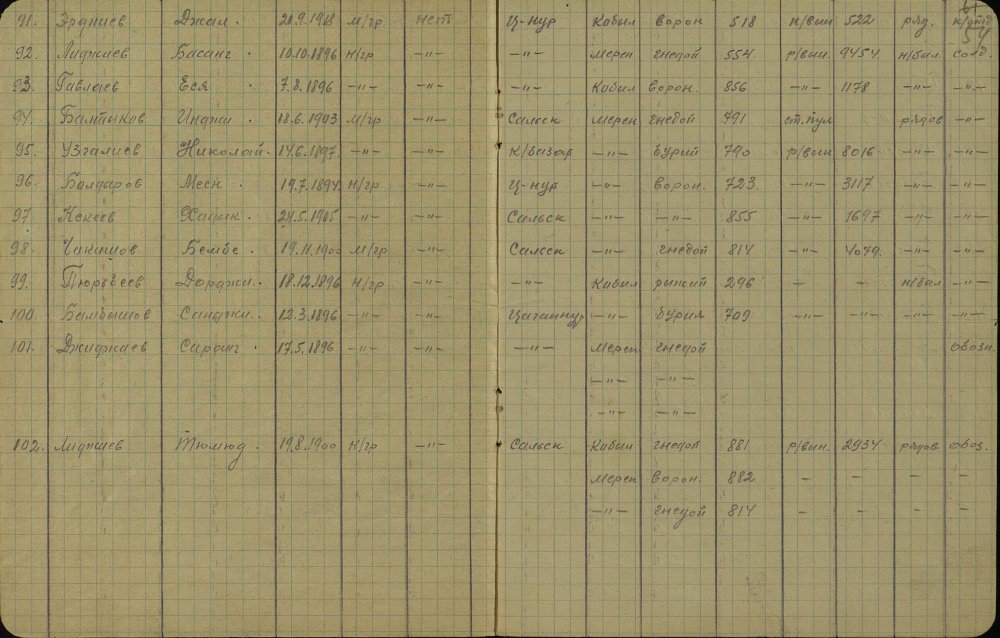 91. Эрдниев Джал. 20.9.1918 м/гр нет Ц-нур Кобыл ворон 518 н/вин 522 ряд. к/отд
54
92. Лиджиев Басанг 10.10.1896 н/гр -"- -"- Мерен гнедой 554 р/вин. 9454 н/был солд.
93. Гавлаев Еся 7.8.1896 -"- -"- -"- Кобыл ворон. 856 -"- 1178 -"- -"-
94. Инджи 18.6.1903 м/гр -"- Сальск Мерен гнедой 791 ст.пул рядов -"-
95. Узгалиев Николай 14.6.1897. -"- -"- К/базар -"- бурый 790 р/вин 8016 -"- -"-
96. Болдыров Месн 19.7.1894. н/гр -"- Ц-нур -"- ворон. 723. -"- 3117 -"- -"-
97. Кекеев Хадык 24.5.1905 -"- -"- Сальск -"- -"- 855 -"- 1697 -"- -"-
98. Бембе 19.11.1900 м/гр -"- Сальск -"- гнедой 814 -"- 4079. -"- -"-
99. Тюрбеев Дорджи 18.12.1896 н/гр -"- -"- Кобыл рыжий 296 - - н/был -"-
100. Бамбышов Санджи 12.3.1896 -"- -"- Цаганнур -"- бурый 709 -"- -"- -"- -"-
101. Джиджиев Саранг 17.5.1896 -"- -"- -"- Мерен гнедой обозн.
-"- -"-
-"- -"-
102. Лиджиев Тюмюд 19.8.1900 н/гр -"- Сальск Кобыл гнедой 881 р/вин. 2934 рядов обоз.
Мерен ворон. 882 - - - -
-"- гнедой 814 - - - -